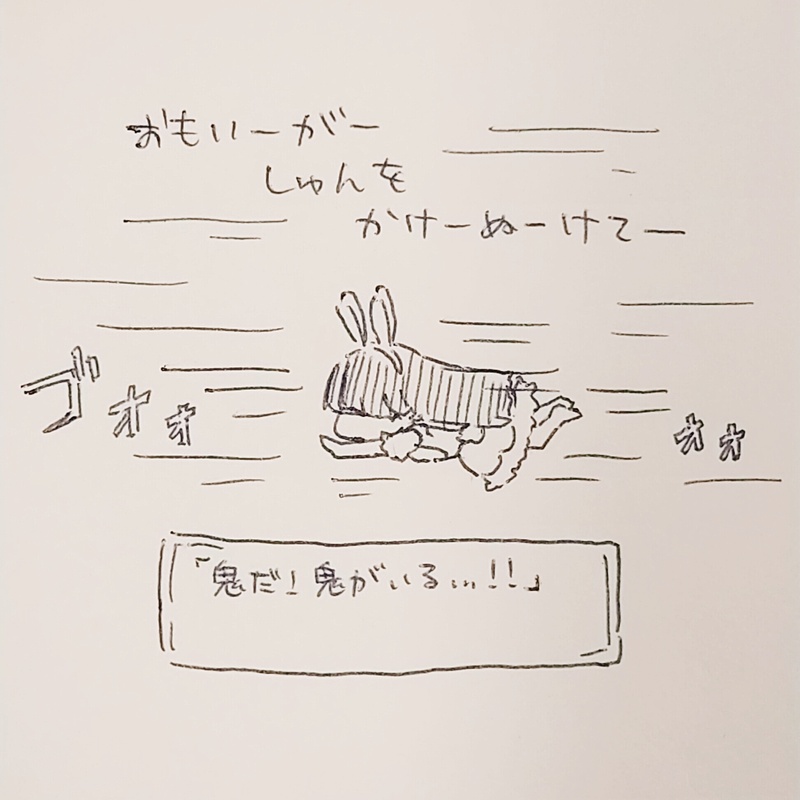 おもいーがー
しゅんを
かけーぬーけてー
ゴオォ
オォ
「鬼だ！鬼がいるぃ!!」